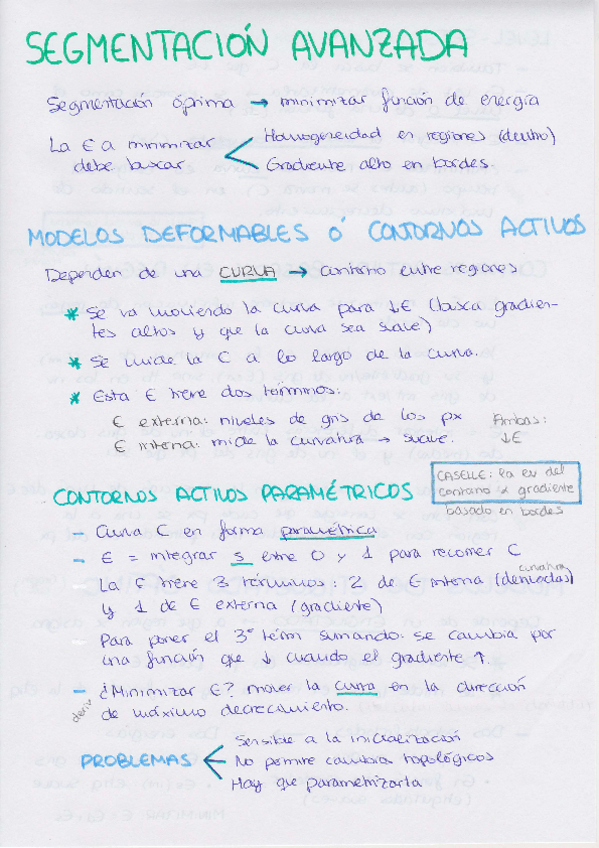 SEGMENTACIÓN AVANZADA
Segmentación óptima → minimizar función de energía
La E a minimizar debe buscar
Homogeneidad en regiones (dentro)
Gradiente alto en bordes.
MODELOS DEFORMABLES O CONTORNOS ACTIVOS
Dependen de una CURVA → contorno entre regiones
* Se va moviendo la curva para ↓E (busca gradien-
tes altos y que la curva sea suave)
* Se mide la C a lo largo de la curva.
* Esta E tiene dos términos:
E externa: niveles de gris de los px
E interna: mide la curvatura → suave.
Ambas:
↓E
CONTORNOS ACTIVOS PARAMÉTRICOS
CASELLE: la ev del
contorno gradiente
basado en bordes
- Curva C en forma paramétrica
- E = integrar s entre 0 y 1 para recorrer C
La E tiene 3 términos: 2 de E interna (derivadas)
curvatura
y 1 de E externa (gradiente)
- Para poner el 3er térm sumando: se cambia por
una función que ↓ cuando el gradiente ↑.
- ¿Minimizar E? mover la curva en la dirección
deriv
de máximo decrecimiento.
PROBLEMAS
Sensible a la inicialización
No permite cambios topológicos
Hay que parametrizarla